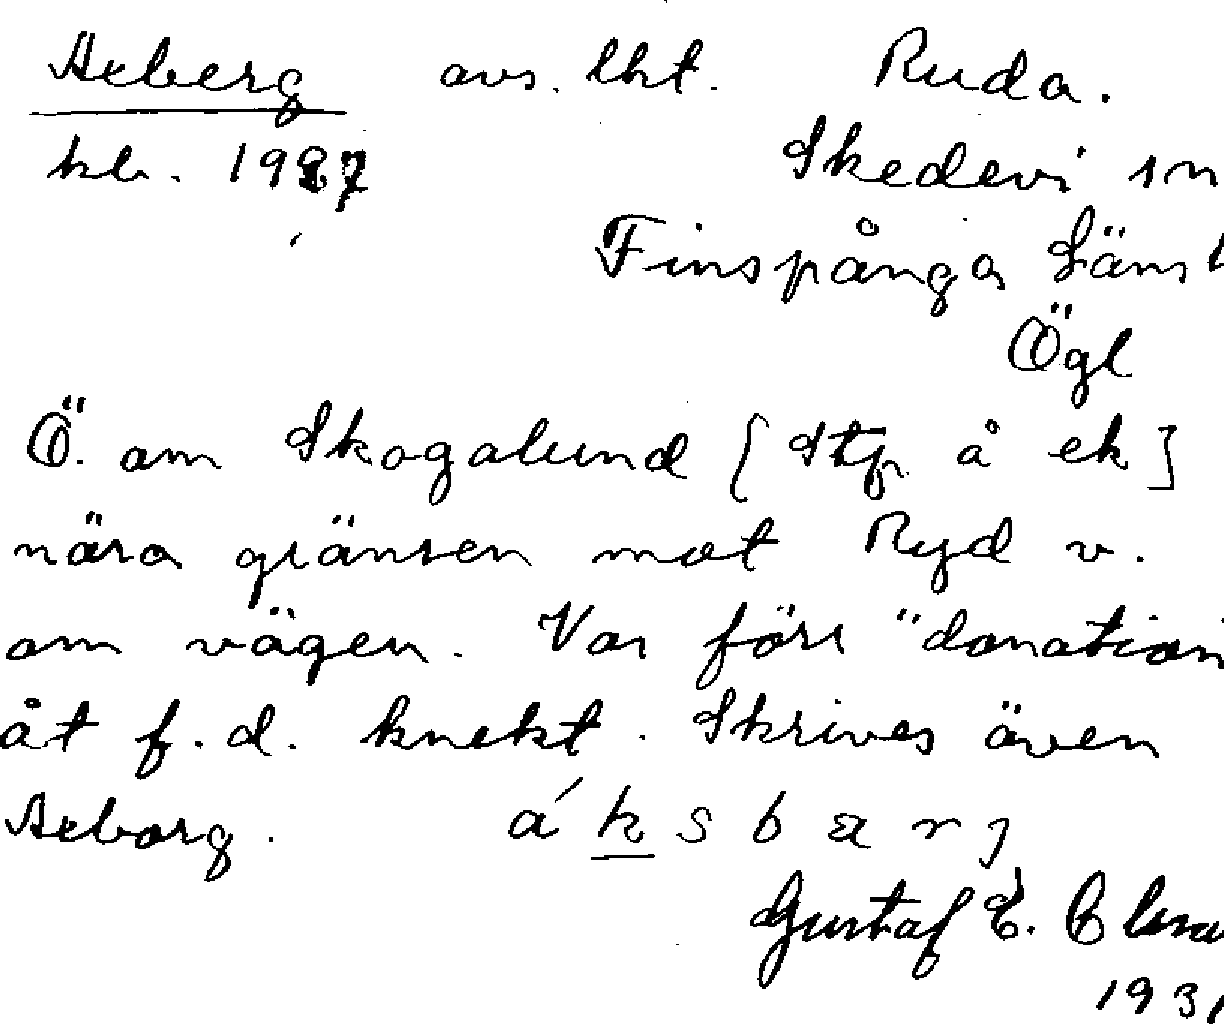 Axberg avs. lht. Ruda.
hb. 1927 Skedevi sn
Finspånga Läns
Ögl
Ö. om Skogalund [Stp å ek]
nära gränsen mot Ryd v.
om vägen. Var förr "donation
åt f.d. knekt. Skrives även
Axborg. áksbærj
Gustaf E.
1931